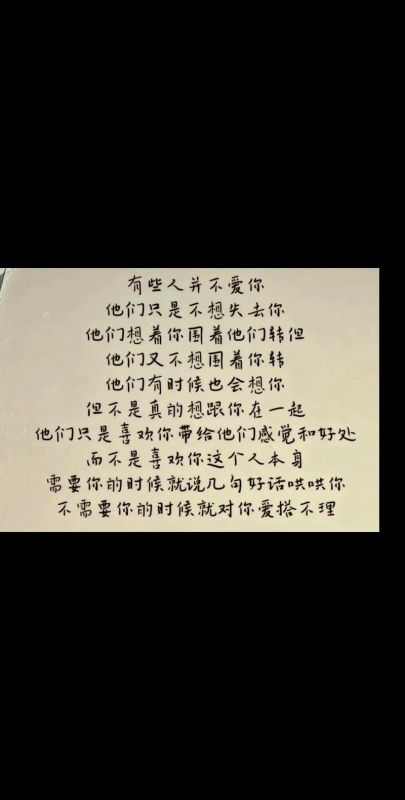 有些人并不爱你
他们只是不想失去你
他们想着你围着他们转但
他们又不想围着你转
他们有时候也会想你
但不是真的想跟你在一起
他们只是喜欢你带给他们感觉和好处
而不是喜欢你这个人本身
需要你的时候就说几句好话哄哄你
不需要你的时候就对你爱搭不理